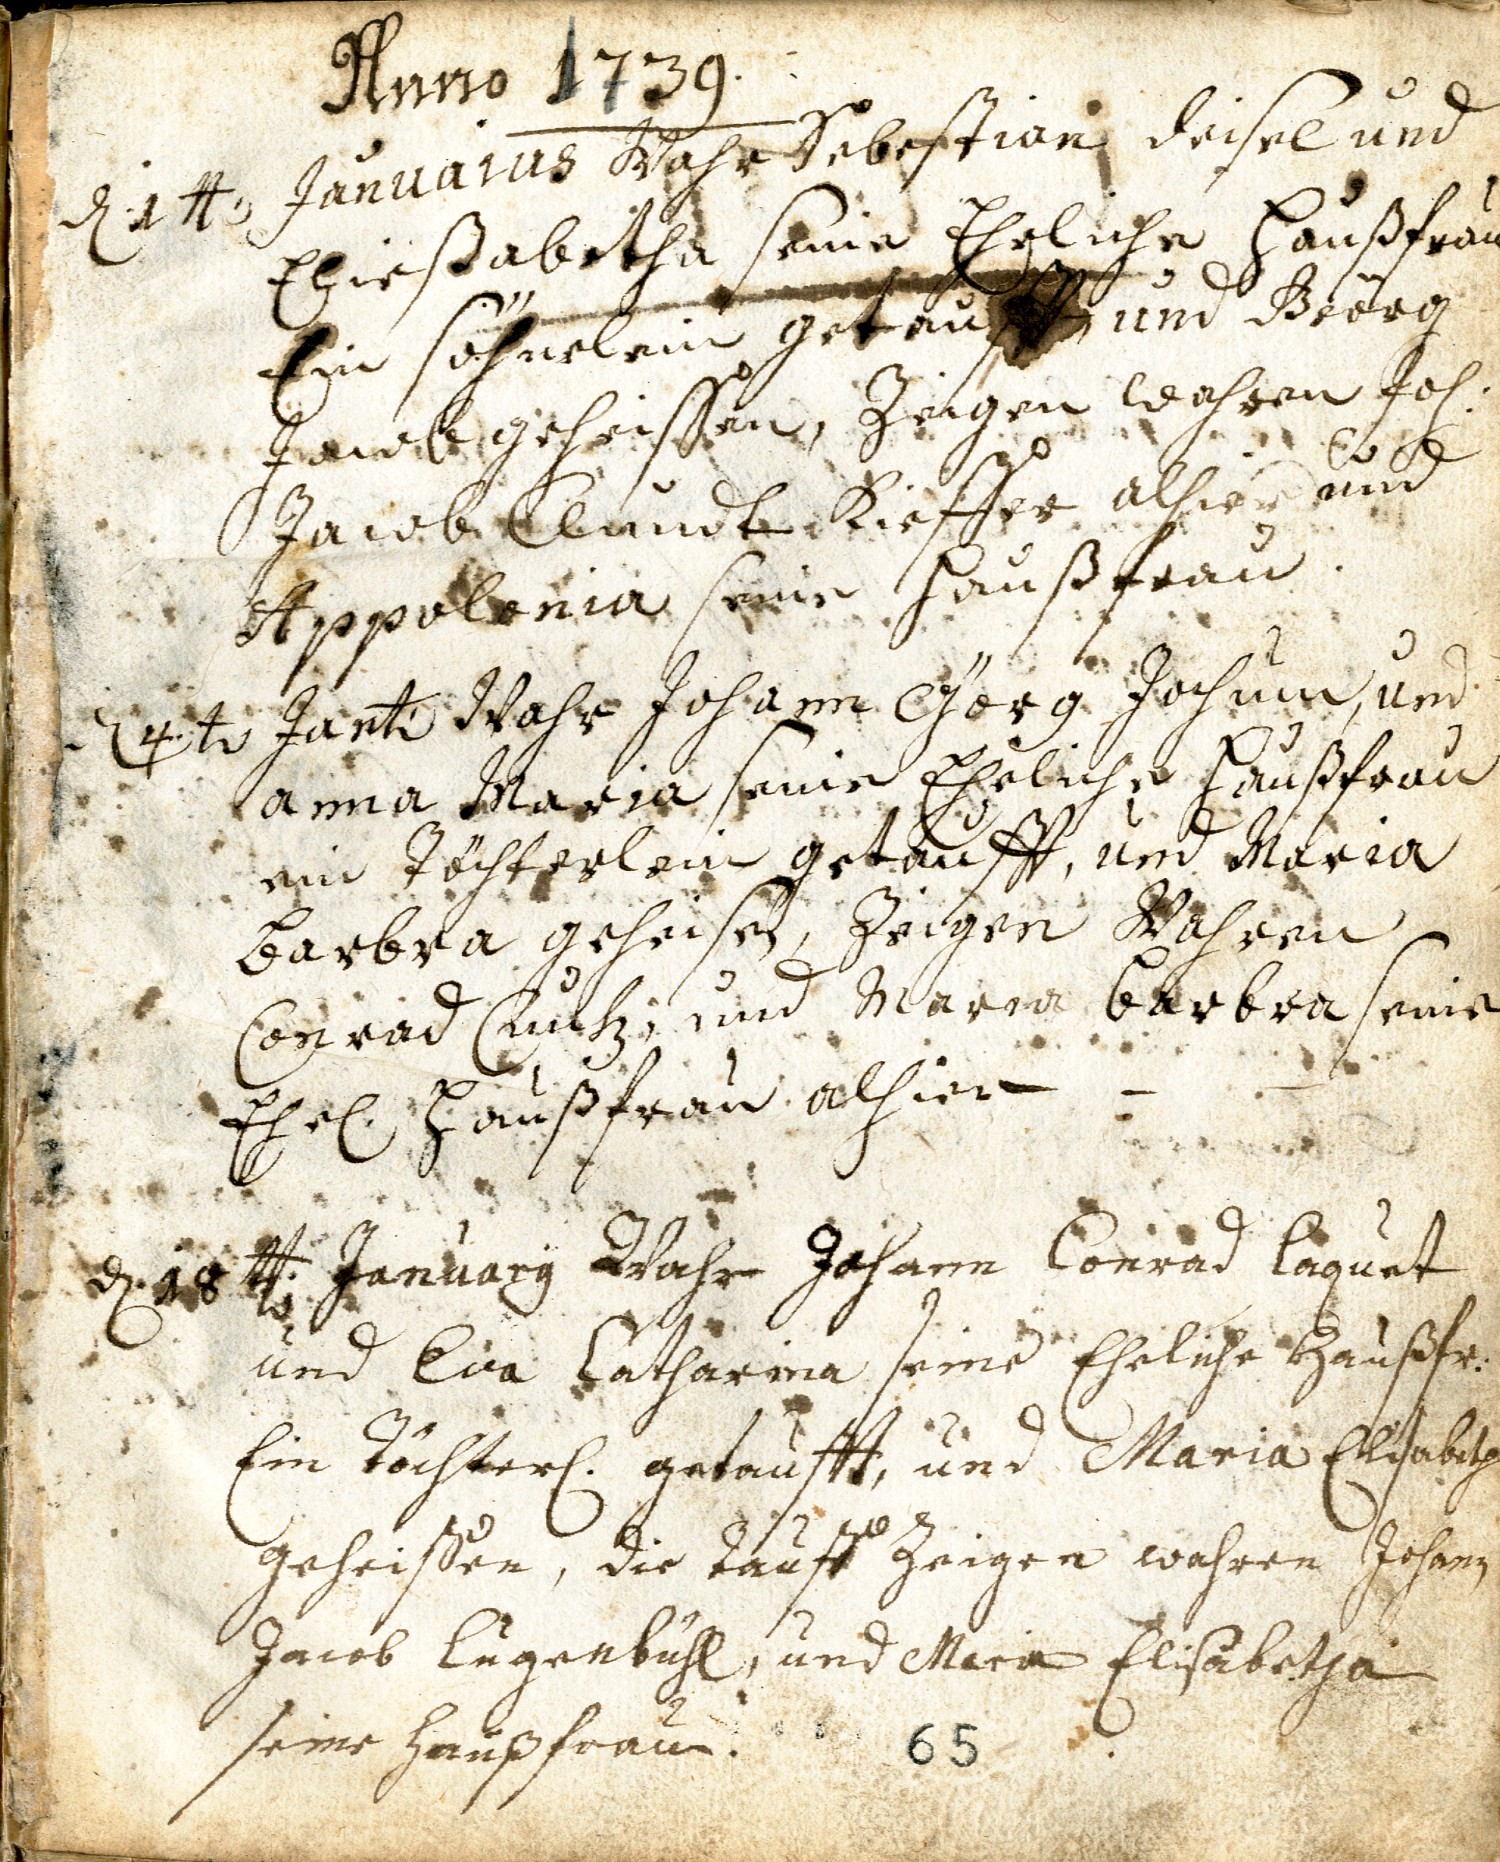 Anno 1739.
d. 1 tt. Januarius Wahr Sebestian deisel und
Eließabetha seine Eheliche Haußfrau
Ein söhnelein getaufft, und Geörg
Jacob geheissen, Zeigen wahren Joh:
Jacob Kieffer alhier und
Appolonia seine haußfrau.
24.t. Jan Wahr Johann Görg Jochum, und
anna Maria seine Eheliche Haußfrau
ein töchterlein getaufft, und Maria
barbra geheisen, Zeigen Wahren
Conrad und Maria barbra seine
Ehel. Haußfrau alhier
d. 18 tt. January Wahr Johann Conrad Laquet
und Eva Catharina seine Eheliche Haußfr:
Ein töchterl. getaufft, und Maria Elisabetha
geheissen, die tauff Zeigen wahren Johann
Jacob Lugenbühl, und Maria Elisabetha
seine haußfrau.
65